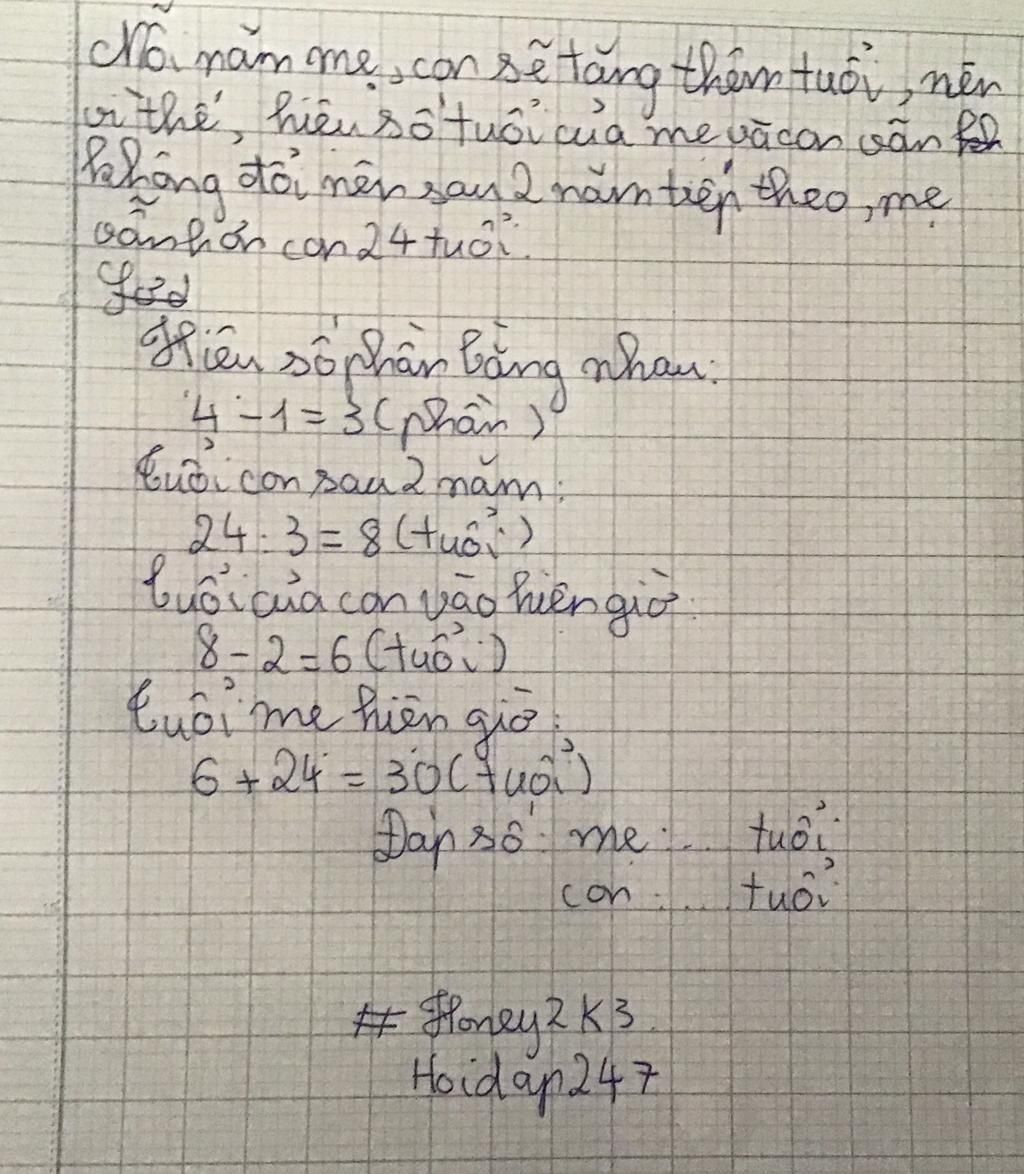 Mỗi năm mẹ, con sẽ tăng thêm tuổi, nên
vì thế, hiệu số tuổi của mẹ và con vẫn
không đổi nên sau 2 năm tiếp theo, mẹ
vẫn hơn con 24 tuổi.
Hiệu số phần bằng nhau:
4 - 1 = 3 (phần)
tuổi con sau 2 năm:
24 : 3 = 8 (tuổi)
tuổi của con vào hiện giờ:
8 - 2 = 6 (tuổi)
tuổi mẹ hiện giờ:
6 + 24 = 30 (tuổi)
Đáp số: mẹ: ... tuổi
con: ... tuổi
# Honey2K3
Hoidap247